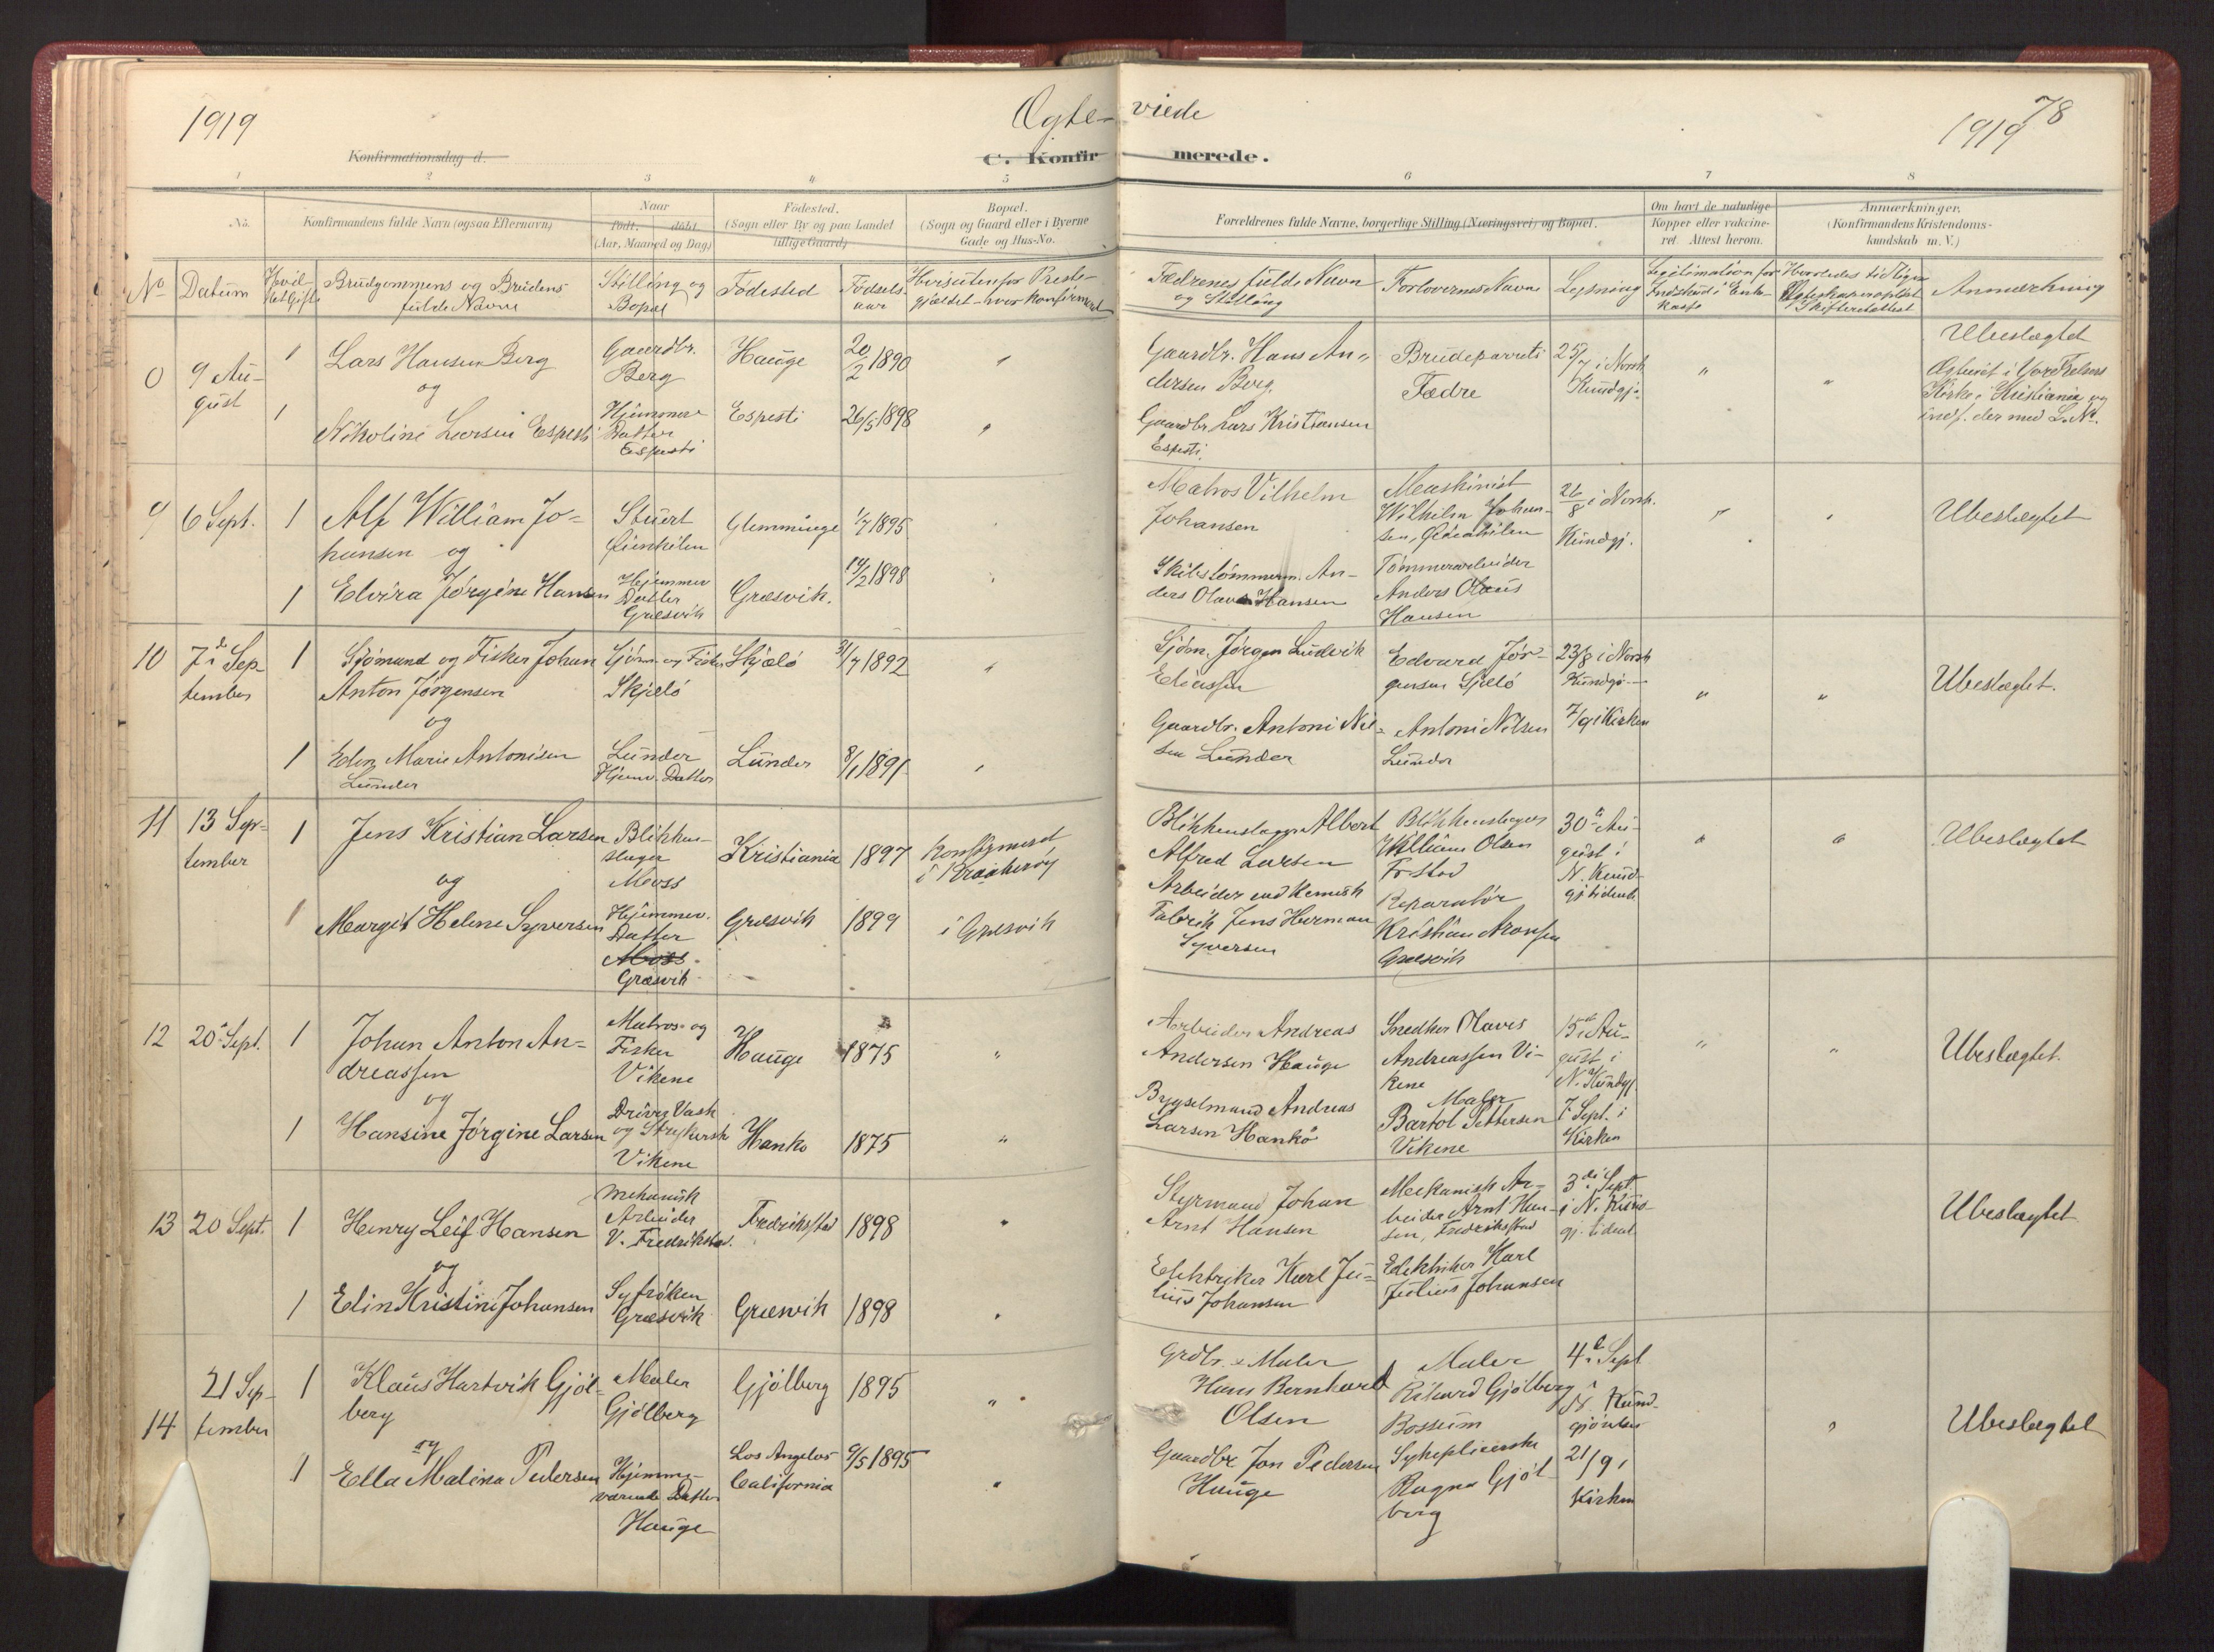 1919
Ægte-viede
78
1919
Konfirmationsdag d.
C. Konfirmerede.
1 2 3 4 5 6 7 8
No. Konfirmandens fulde Navn (ogsaa Efternavn)
Naar
født. døbt.
(Aar, Maaned og Dag)
Fødested.
(Sogn eller By og paa Landet
tillige Gaard)
Bopæl.
(Sogn og Gaard eller i Byerne
Gade og Hus-No.
Forældrenes fulde Navne, borgerlige Stilling (Næringsvei) og Bopæl.
Om havt de naturlige
Kopper eller vakcine-
ret. Attest herom.
Anmærkninger.
(Konfirmandens Kristendoms-
kundskab m. V.)
No
Datum
Brudgommens og Brudens
fulde Navne
Stilling og
Bopæl
Fødested
Fødsels-
aar
Hvis udenfor Preste-
gjældet - hvor Konfirmeret
Fædrenes fulde Navn
og Stilling
Forlovernes Navne
Lysning
Legitimation for
Indskud i Enke-
kasse
Anmærkning
0
9 Au-
gust
1
Lars Hansen Berg
og
Gaardbr.
Berg
Hauge
20/2 1890
"
Gaardbr. Hans An-
dersen Berg.
Brudeparrets
Fædre
25/7 i Norsk
Kundgj.
"
"
Ubeslægtet
Ægteviet i Vor Frelsers
Kirke i Kristiania og
indf. der med L. No.
1
Nikoline Larsin Espesti
Hjemmev.
Datter
Espesti
Espesti
26/5 1898
"
Gaardbr. Lars Kristiansen
Espesti.
9
6 Sept.
1
Alf William Jo-
hansen og
Stuert
Glemminge
1/7 1895
Matros Vilhelm
Johansen
Maskinist
Wilhelm Johan-
sen,
26/8 i Norsk.
Kundgj.
"
Ubeslægtet
1
Elvira Jørgine Hansen
Hjemmev
Datter
Græsvik
Græsvik.
14/2 1898
Skibstømmerm. An-
ders Olaus Hansen
Tømmerarbeider
Anders Olaus
Hansen
10
7de Sep-
tember
1
Sjømand og Fisker Johan
Anton Jørgensen
og
Sjøm. og Fisker
Skjælø
Skjælø
31/7 1892
"
Sjøm. Jørgen Ludvik
Eliassen
Edvard Jør-
gensen Sjælø
23/8 i Norsk
Kundgj.
7/9 i Kirken
"
"
Ubeslægtet.
1
Elen Marie Antonisen
Lunder
Lunder
Hjemv. Datter
Lunder
8/1 1891
"
Gaardbr. Antoni Nil-
sen Lunder
Antoni Nilsen
Lunder
11
13 Sep-
tember
1
Jens Kristian Larsen
og
Blikken-
slager
Moss
Kristiania
1897
Konfirmeret
i Kraakerøy
Blikkenslager Albert
Alfred Larsen
Blikkenslager
William Olsen
Fr.stad
30te Au-
gust i
N. Kund-
gj. tidende
"
"
Ubeslægtet
1
Margit Helene Syversen
Hjemmev.
Datter
Moss.
Græsvik
Græsvik
1899
i Græsvik
Arbeider ved Kemisk
Fabrik Jens Herman
Syversen
Reparatør
Kristian Aronsen
Græsvik
12
20de Sept.
1
Johan Anton An-
dreassen
og
Matros- og
Fisker
Vikene
Hauge
1875
"
Arbeider Andreas
Andersen Hauge
Snedker Olaves
Andreassen Vi-
kene
15de Au-
gust i
N. Kundgj.
"
"
Ubeslægtet.
1
Hansine Jørgine Larsen
Driver Vask
og Strykersk
Vikene
Hankø
1875
"
Bygselmand Andreas
Larsen Hankø
Maler
Bartol Pettersen
Vikene
7 Sept. i
Kirken
13
20 Sept.
1
Henry Leif Hansen
og
Mekanisk
Arbeider
V. Fredrikstad.
Fredriksstad
1898
"
Styrmand Johan
Arnt Hansen
Mekanisk Ar-
beider Arnt Han-
sen, Fredriksstad
3die Sept.
i N. Kund-
gj. tidend
Ubeslægtet
1
Edin Kristine Johansen
Syfrøken
Græsvik
Græsvik
1898
"
Elektriker Karl Ju-
lius Johansen
Elektriker Karl
Julius Johansen
14
21 Sep-
tember
1
Klaus Hartvik Gjøl-
berg
og
Maler
Gjølberg
Gjølberg
1895
"
Grdbr. & Maler
Hans Bernhard
Olsen
Maler
Rikard Gjølberg
Bossum
4de Sept
i
N. Kund-
gjørelser
"
Ubeslægtet
1
Ella Malina Pedersen
Hjemme-
værende Datter
Hauge
Los Angelos
California
9/5 1895
"
Gaardbr Jon Pedersen
Hauge
Sykepleierske
Ragna Gjøl-
berg
21/9 i
Kirken